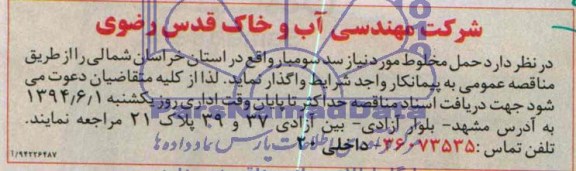 شرکت مهندسی آب و خاک قدس رضوی
در نظر دارد حمل مخلوط مورد نیاز سد سومبار واقع در استان خراسان شمالی را از طریق
مناقصه عمومی به پیمانکار واجد شرایط واگذار نماید. لذا از کلیه متقاضیان دعوت می
شود جهت دریافت اسناد مناقصه حداکثر تا پایان وقت اداری روز یکشنبه ۱۳۹۴/۶/۱
به آدرس مشهد- بلوار آزادی- بین آزادی ۳۷ و ۳۹ پلاک ۲۱ مراجعه نمایند.
تلفن تماس: ۳۶۰۷۳۵۳۵- داخلی ۲۰
۹۴۲۲۶۴۸۷/آ
ParsNamadData
پارس نماد داده ها